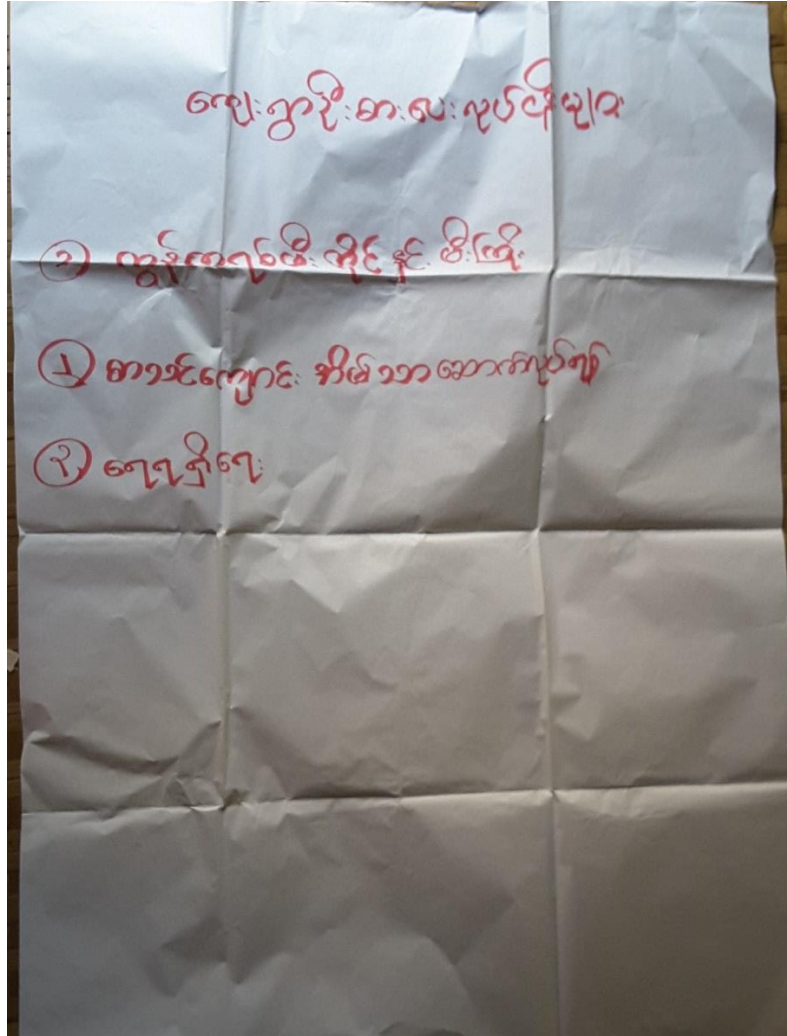 ကျေးရွာဦးစားပေးလုပ်ငန်းများ
၃ ကွန်ကရစ်မီးတိုင်နှင့် မီးကြိုး
၁ စာသင်ကျောင်း အိမ်သာဆောက်လုပ်ရန်
၂ ရေရရှိရေး